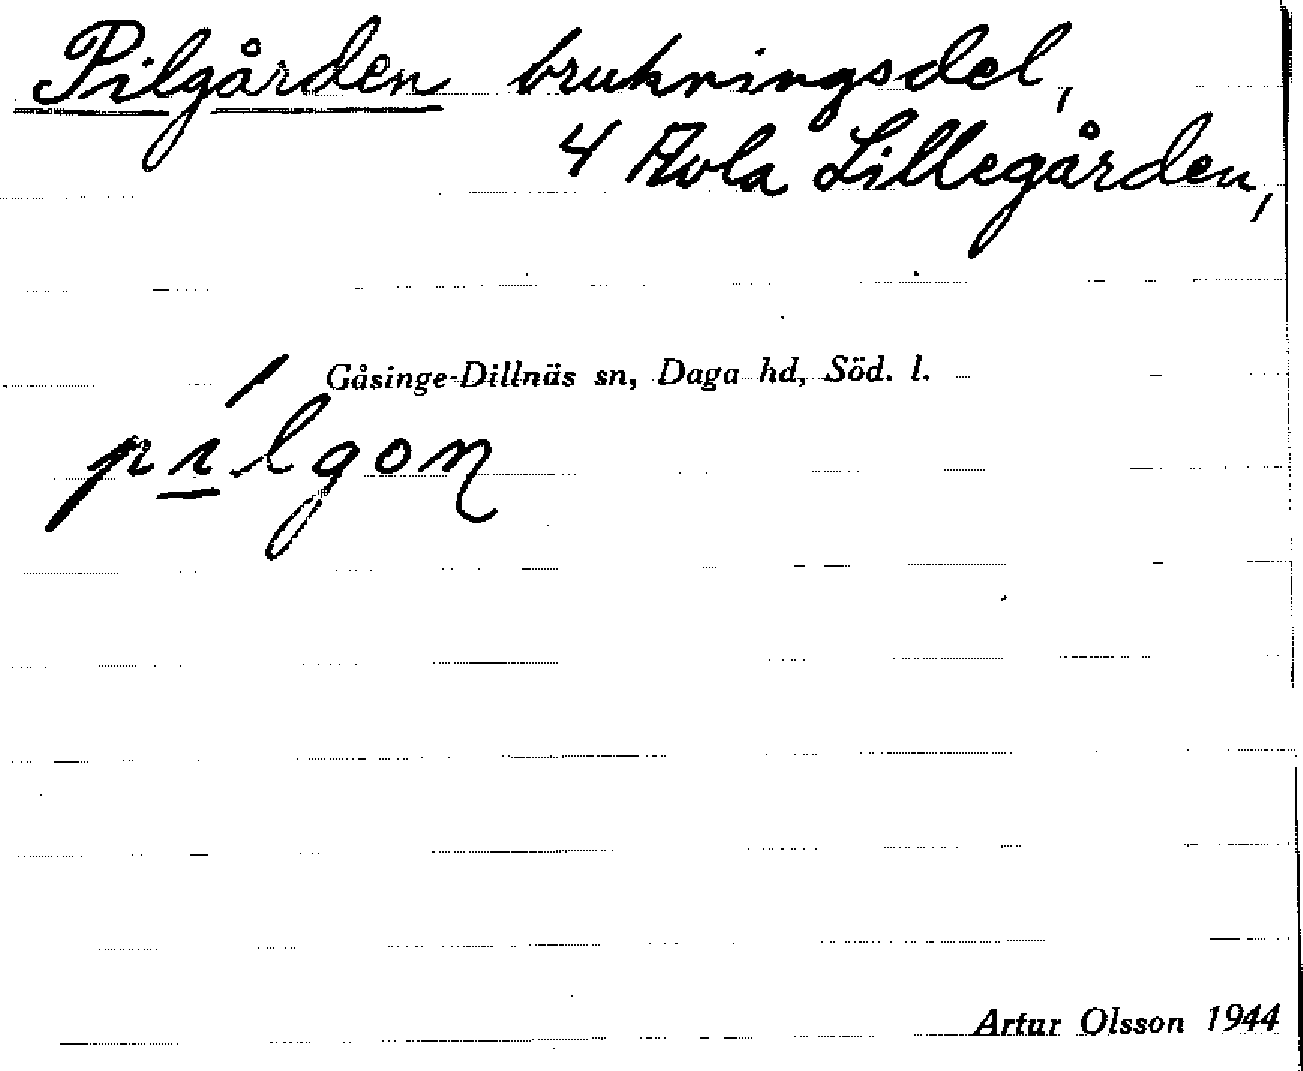 Pilgården brukningsdel,
4 Avla Lillegården,
Gåsinge-Dillnäs sn, Daga hd, Söd. l.
Artur Olsson 1944